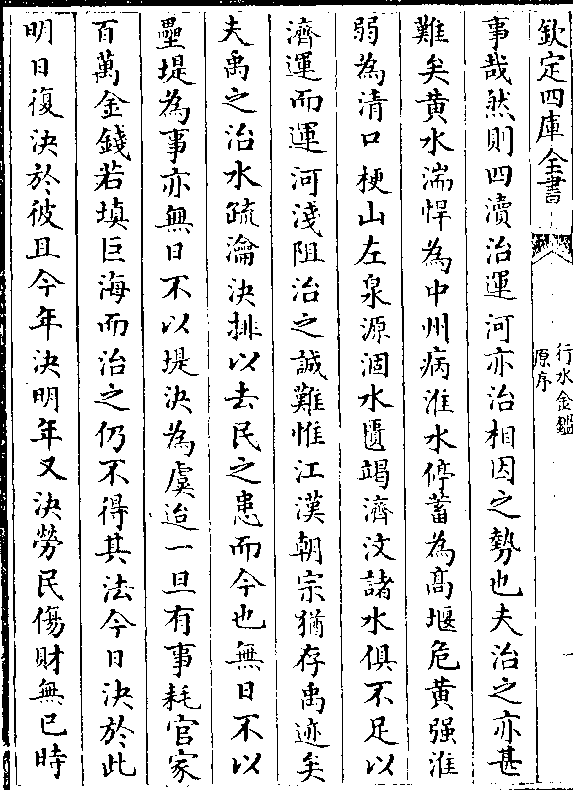 欽定四庫全書
行水金鑑
原序
事哉然則四瀆治運河亦治相因之勢也夫治之亦甚
難矣黄水湍悍為中州病淮水停蓄為高堰危黄强淮
弱為清口梗山左泉源涸水匱竭濟汶諸水俱不足以
濟運而運河淺阻治之誠難惟江漢朝宗猶存禹迹矣
夫禹之治水疏瀹決排以去民之患而今也無日不以
壘堤為事亦無日不以堤決為虞迨一旦有事耗官家
百萬金錢若填巨海而治之仍不得其法今日決於此
明日復決於彼且今年決明年又決勞民傷財無已時